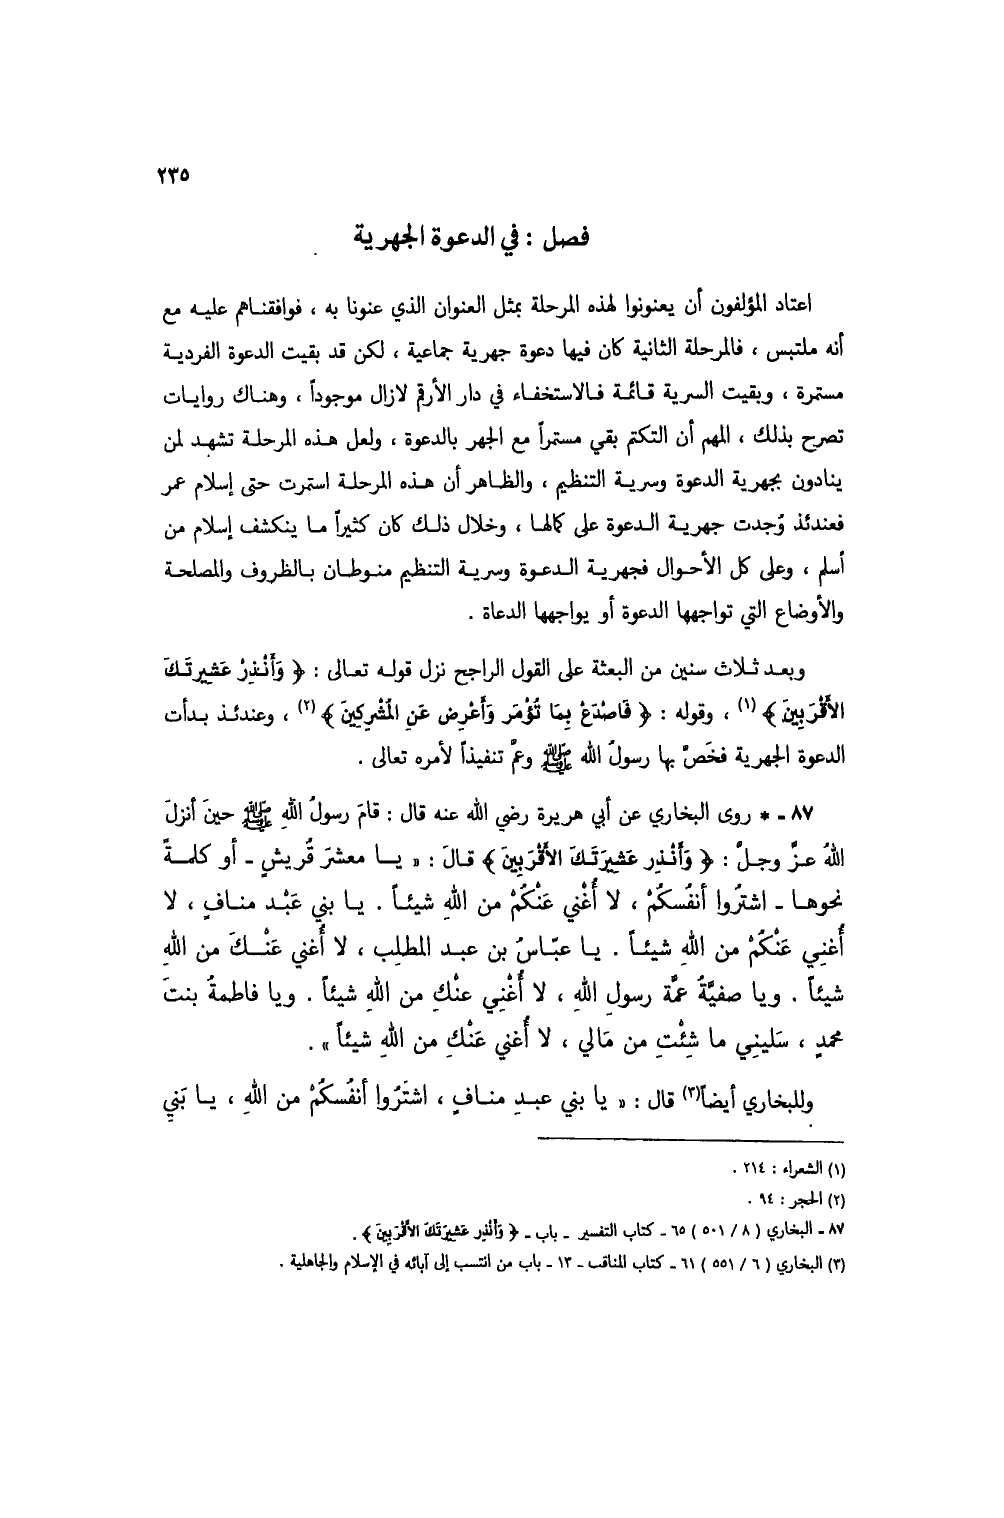 ٢٣٥
فصل : في الدعوة الجهرية
اعتاد المؤلفون أن يعنونوا لهذه المرحلة بمثل العنوان الذي عنونا به ، فوافقناهم عليه مع
أنه ملتبس ، فالمرحلة الثانية كان فيها دعوة جهرية جماعية ، لكن قد بقيت الدعوة الفردية
مستمرة ، وبقيت السرية قائمة فالاستخفاء في دار الأرقم لازال موجوداً ، وهناك روايات
تصرح بذلك ، المهم أن التكتم بقي مستمراً مع الجهر بالدعوة ، ولعل هذه المرحلة تشهد لمن
ينادون بجهرية الدعوة وسرية التنظيم ، والظاهر أن هذه المرحلة استمرت حتى إسلام عمر
فعندئذ وُجدت جهرية الدعوة على كمالها ، وخلال ذلك كان كثيراً ما ينكشف إسلام من
أسلم ، وعلى كل الأحوال فجهرية الدعوة وسرية التنظيم منوطان بالظروف والمصلحة
والأوضاع التي تواجهها الدعوة أو يواجهها الدعاة .
وبعد ثلاث سنين من البعثة على القول الراجح نزل قوله تعالى : ﴿ وَأَنْذِرْ عَشِيرتَكَ
الأَقْرَبِينَ ﴾ (١) ، وقوله : ﴿ فَاصْدَعْ بِمَا تُؤْمَر وَأَعْرِض عَنِ المُشْرِكِينَ ﴾ (٢) ، وعندئذ بدأت
الدعوة الجهرية فخَصَّ بها رسولُ الله ﷺ وعمَّ تنفيذاً لأمره تعالى .
٨٧ - * روى البخاري عن أبي هريرة رضي الله عنه قال : قامَ رسولُ اللهِ ﷺ حينَ أنزلَ
اللهُ عزَّ وجلَّ : ﴿ وَأَنْذِر عَشِيرَتَكَ الأَقْرَبِينَ ﴾ قالَ : « يا معشرَ قُريشٍ - أو كلمةً
نحوها - اشتَرُوا أنفُسكُمْ ، لا أُغْني عَنْكُمْ من اللهِ شيئاً . يا بني عَبْد منافٍ ، لا
أُغنِي عَنْكُمْ من اللهِ شيئاً . يا عبّاسُ بن عبد المطلِب ، لا أُغني عَنْكَ من اللهِ
شيئاً . ويا صفيَّةُ عمَّة رسولِ اللهِ ، لا أُغْنِي عنْكِ من اللهِ شيئاً . ويا فاطمةُ بنتَ
محمدٍ ، سَلينِي ما شِئْتِ من مَالي ، لا أُغني عَنْكِ من اللهِ شيئاً » .
وللبخاري أيضاً(٣) قال : « يا بني عبدِ منافٍ ، اشتَرُوا أنفُسكُمْ من اللهِ ، يا بَني
(١) الشعراء : ٢١٤ .
(٢) الحجر : ٩٤ .
٨٧ - البخاري ( ٨ / ٥٠١ ) ٦٥ - كتاب التفسير - باب - ﴿ وَأَنْذِر عَشِيرَتَكَ الأَقْرَبِينَ ﴾ .
(٣) البخاري ( ٦ / ٥٥١ ) ٦١ - كتاب المناقب - ١٣ - باب من انتسب إلى آبائه في الإسلام والجاهلية .